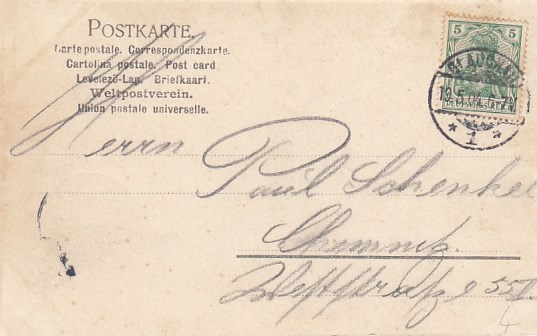 POSTKARTE.
Carte postale. Correspondenzkarte.
Cartolina postale. Post card
Levelező-Lap. Briefkaart.
Weltpostverein.
Union postale universelle.
5 5
GLAUCHAU
* 1 *
Herrn
Paul Schenkel
Chemnitz.
Weststraße 55II